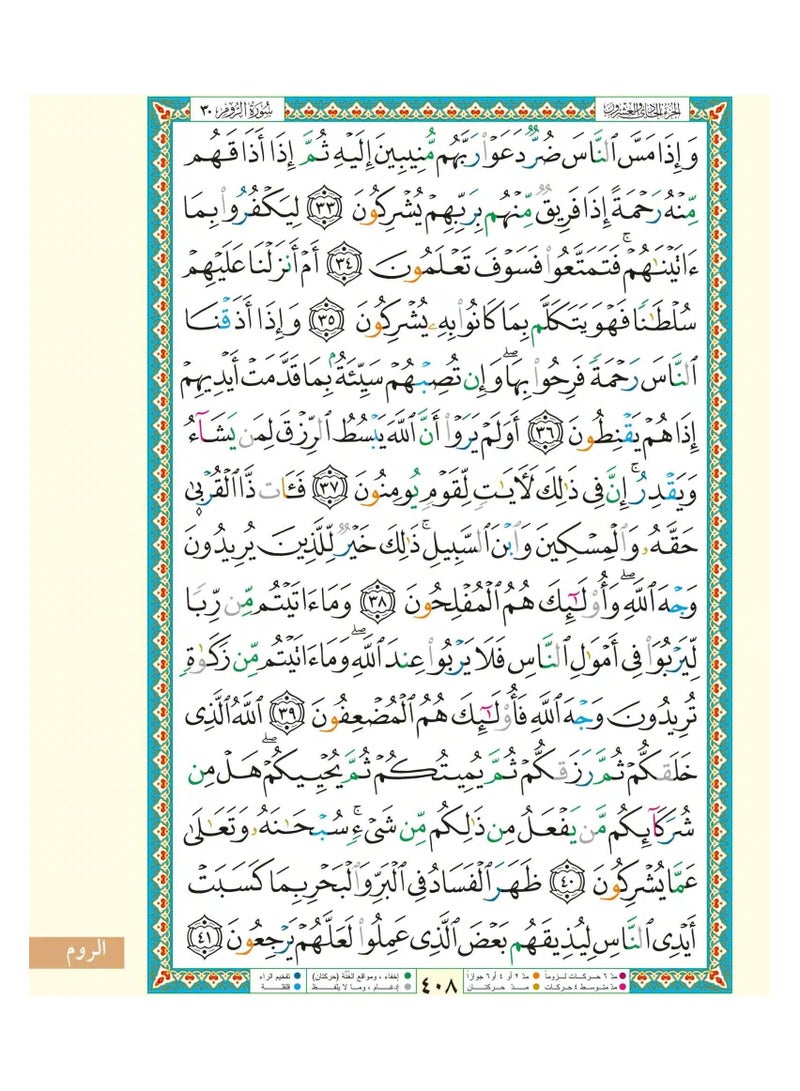 الجزء الحادي والعشرون
سورة الروم ٣٠
وَإِذَا مَسَّ ٱلنَّاسَ ضُرٌّ دَعَوْا۟ رَبَّهُم مُّنِيبِينَ إِلَيْهِ ثُمَّ إِذَآ أَذَاقَهُم
مِّنْهُ رَحْمَةً إِذَا فَرِيقٌ مِّنْهُم بِرَبِّهِمْ يُشْرِكُونَ ٣٣ لِيَكْفُرُوا۟ بِمَآ
ءَاتَيْنَـٰهُمْ ۚ فَتَمَتَّعُوا۟ فَسَوْفَ تَعْلَمُونَ ٣٤ أَمْ أَنزَلْنَا عَلَيْهِمْ
سُلْطَـٰنًا فَهُوَ يَتَكَلَّمُ بِمَا كَانُوا۟ بِهِۦ يُشْرِكُونَ ٣٥ وَإِذَآ أَذَقْنَا
ٱلنَّاسَ رَحْمَةً فَرِحُوا۟ بِهَا ۖ وَإِن تُصِبْهُمْ سَيِّئَةٌۢ بِمَا قَدَّمَتْ أَيْدِيهِمْ
إِذَا هُمْ يَقْنَطُونَ ٣٦ أَوَلَمْ يَرَوْا۟ أَنَّ ٱللَّهَ يَبْسُطُ ٱلرِّزْقَ لِمَن يَشَآءُ
وَيَقْدِرُ ۚ إِنَّ فِى ذَٰلِكَ لَـَٔايَـٰتٍ لِّقَوْمٍ يُؤْمِنُونَ ٣٧ فَـَٔاتِ ذَا ٱلْقُرْبَىٰ
حَقَّهُۥ وَٱلْمِسْكِينَ وَٱبْنَ ٱلسَّبِيلِ ۚ ذَٰلِكَ خَيْرٌ لِّلَّذِينَ يُرِيدُونَ
وَجْهَ ٱللَّهِ ۖ وَأُو۟لَـٰٓئِكَ هُمُ ٱلْمُفْلِحُونَ ٣٨ وَمَآ ءَاتَيْتُم مِّن رِّبًا
لِّيَرْبُوَا۟ فِىٓ أَمْوَٰلِ ٱلنَّاسِ فَلَا يَرْبُوا۟ عِندَ ٱللَّهِ ۖ وَمَآ ءَاتَيْتُم مِّن زَكَوٰةٍ
تُرِيدُونَ وَجْهَ ٱللَّهِ فَأُو۟لَـٰٓئِكَ هُمُ ٱلْمُضْعِفُونَ ٣٩ ٱللَّهُ ٱلَّذِى
خَلَقَكُمْ ثُمَّ رَزَقَكُمْ ثُمَّ يُمِيتُكُمْ ثُمَّ يُحْيِيكُمْ ۖ هَلْ مِن
شُرَكَآئِكُم مَّن يَفْعَلُ مِن ذَٰلِكُم مِّن شَىْءٍ ۚ سُبْحَـٰنَهُۥ وَتَعَـٰلَىٰ
عَمَّا يُشْرِكُونَ ٤٠ ظَهَرَ ٱلْفَسَادُ فِى ٱلْبَرِّ وَٱلْبَحْرِ بِمَا كَسَبَتْ
أَيْدِى ٱلنَّاسِ لِيُذِيقَهُم بَعْضَ ٱلَّذِى عَمِلُوا۟ لَعَلَّهُمْ يَرْجِعُونَ ٤١
الروم
مدّ ٦ حركات لزوماً مدّ ٢ أو ٤ أو ٦ جوازاً
مدّ متوسط ٤ حركات مدّ حركتان
٤٠٨
إخفاء، ومواقع الغُنَّة (حركتان) تفخيم الراء
إدغام، وما لا يلفظ قلقلة